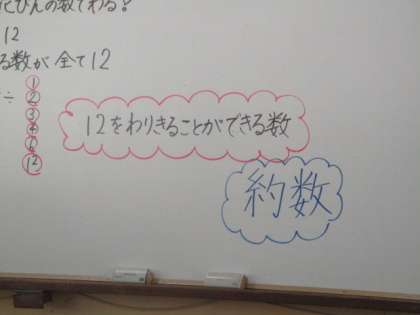 びんの数でわる?
12
る数が全て12
÷
①
②
③
④
⑥
⑫
12をわりきることができる数
約数